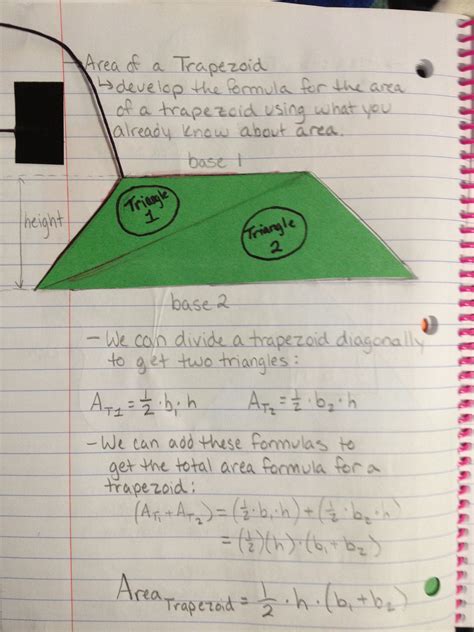 Area of a Trapezoid
↳ develop the formula for the area
of a trapezoid using what you
already know about area.
base 1
Triangle
1
height
Triangle
2
base 2
- We can divide a trapezoid diagonally
to get two triangles:
A_T1 = 1/2 · b₁ · h A_T₂ = 1/2 · b₂ · h
- We can add these formulas to
get the total area formula for a
trapezoid:
(A_T₁ + A_T₂) = (1/2 · b₁ · h) + (1/2 · b₂ · h)
= (1/2)(h) · (b₁ + b₂)
Area Trapezoid = 1/2 · h · (b₁ + b₂)